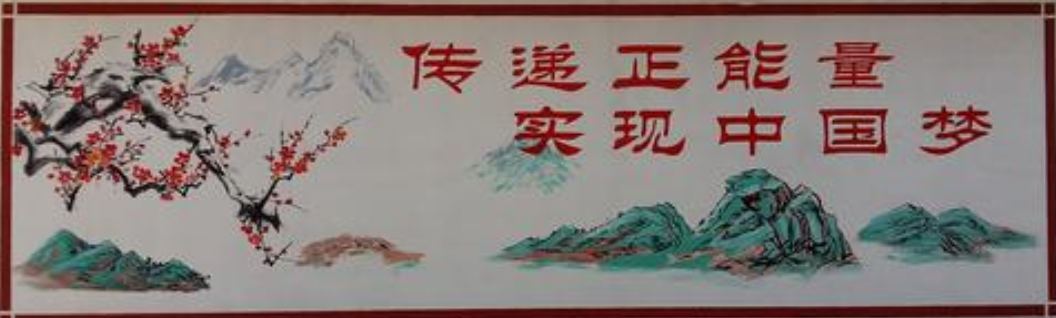 传递正能量
实现中国梦